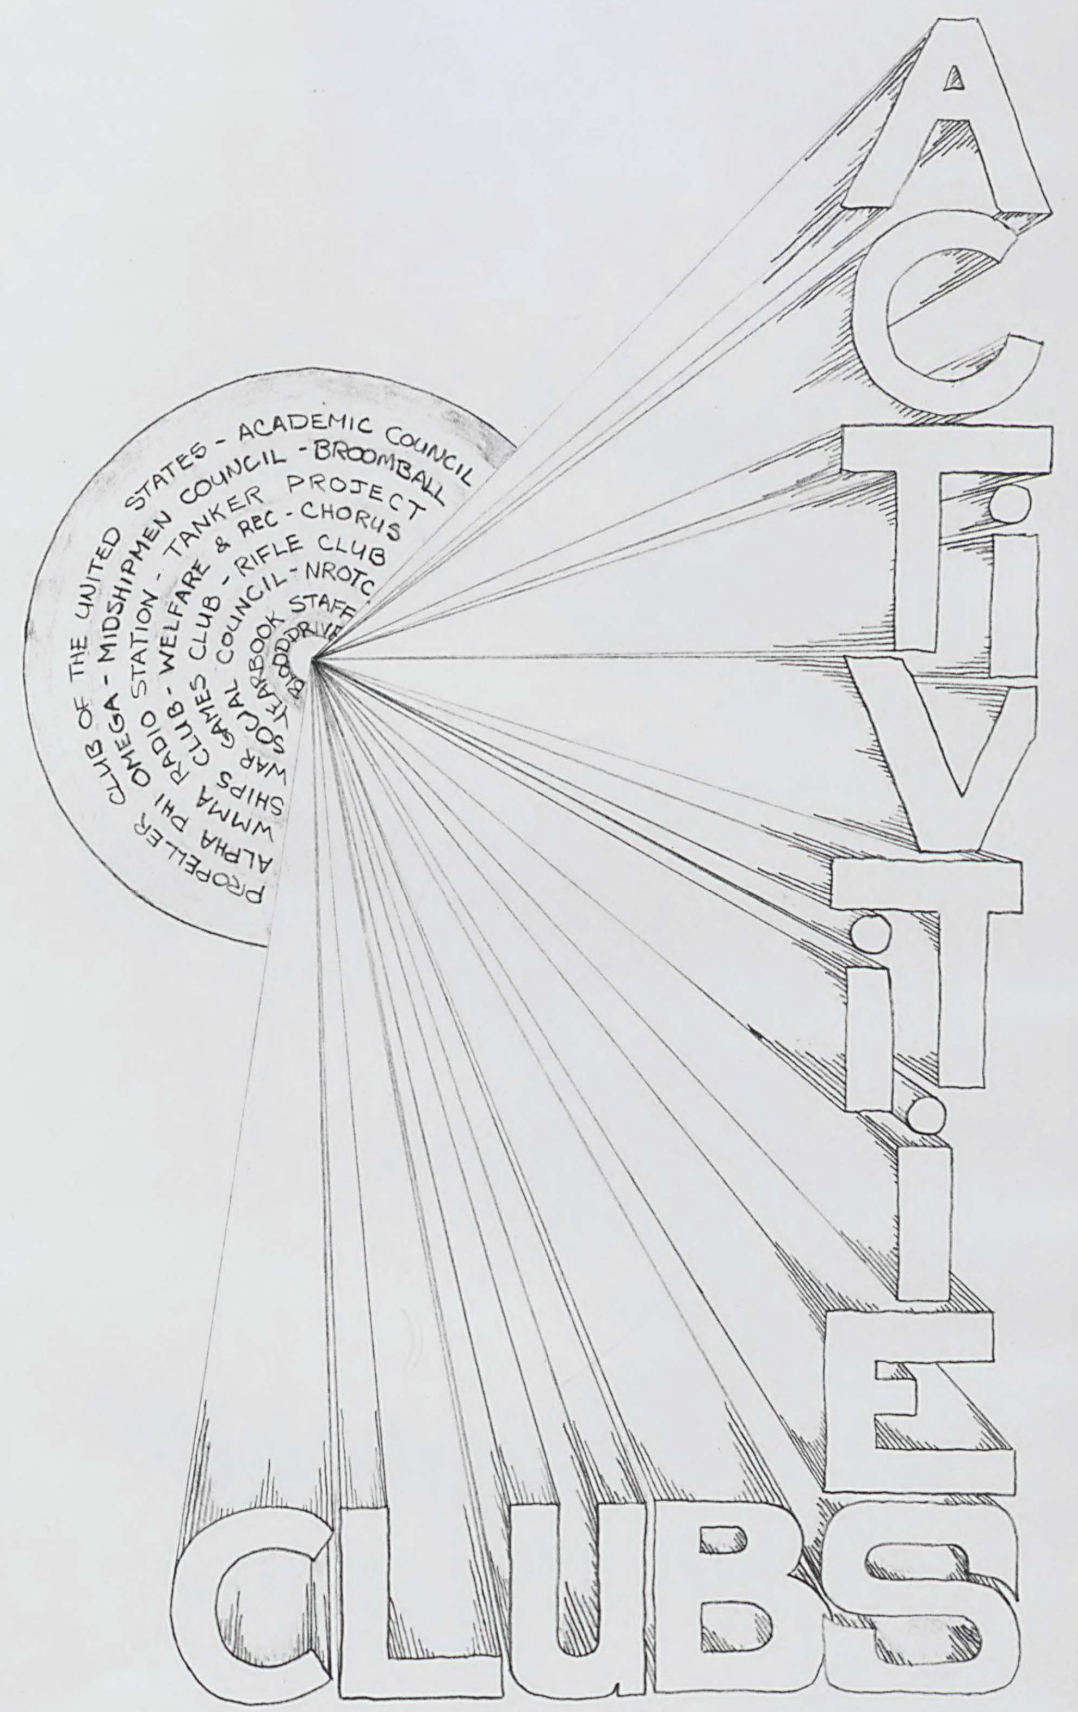 PROPELLER CLUB OF THE UNITED STATES - ACADEMIC COUNCIL
ALPHA PHI OMEGA - MIDSHIPMEN COUNCIL - BROOMBALL
WMMA RADIO STATION - TANKER PROJECT
SHIPS CLUB - WELFARE & REC - CHORUS
WAR GAMES CLUB - RIFLE CLUB
SOCIAL COUNCIL - NROTC
YEARBOOK STAFF
BLOOD DRIVE
ACTiViTiES
CLUBS